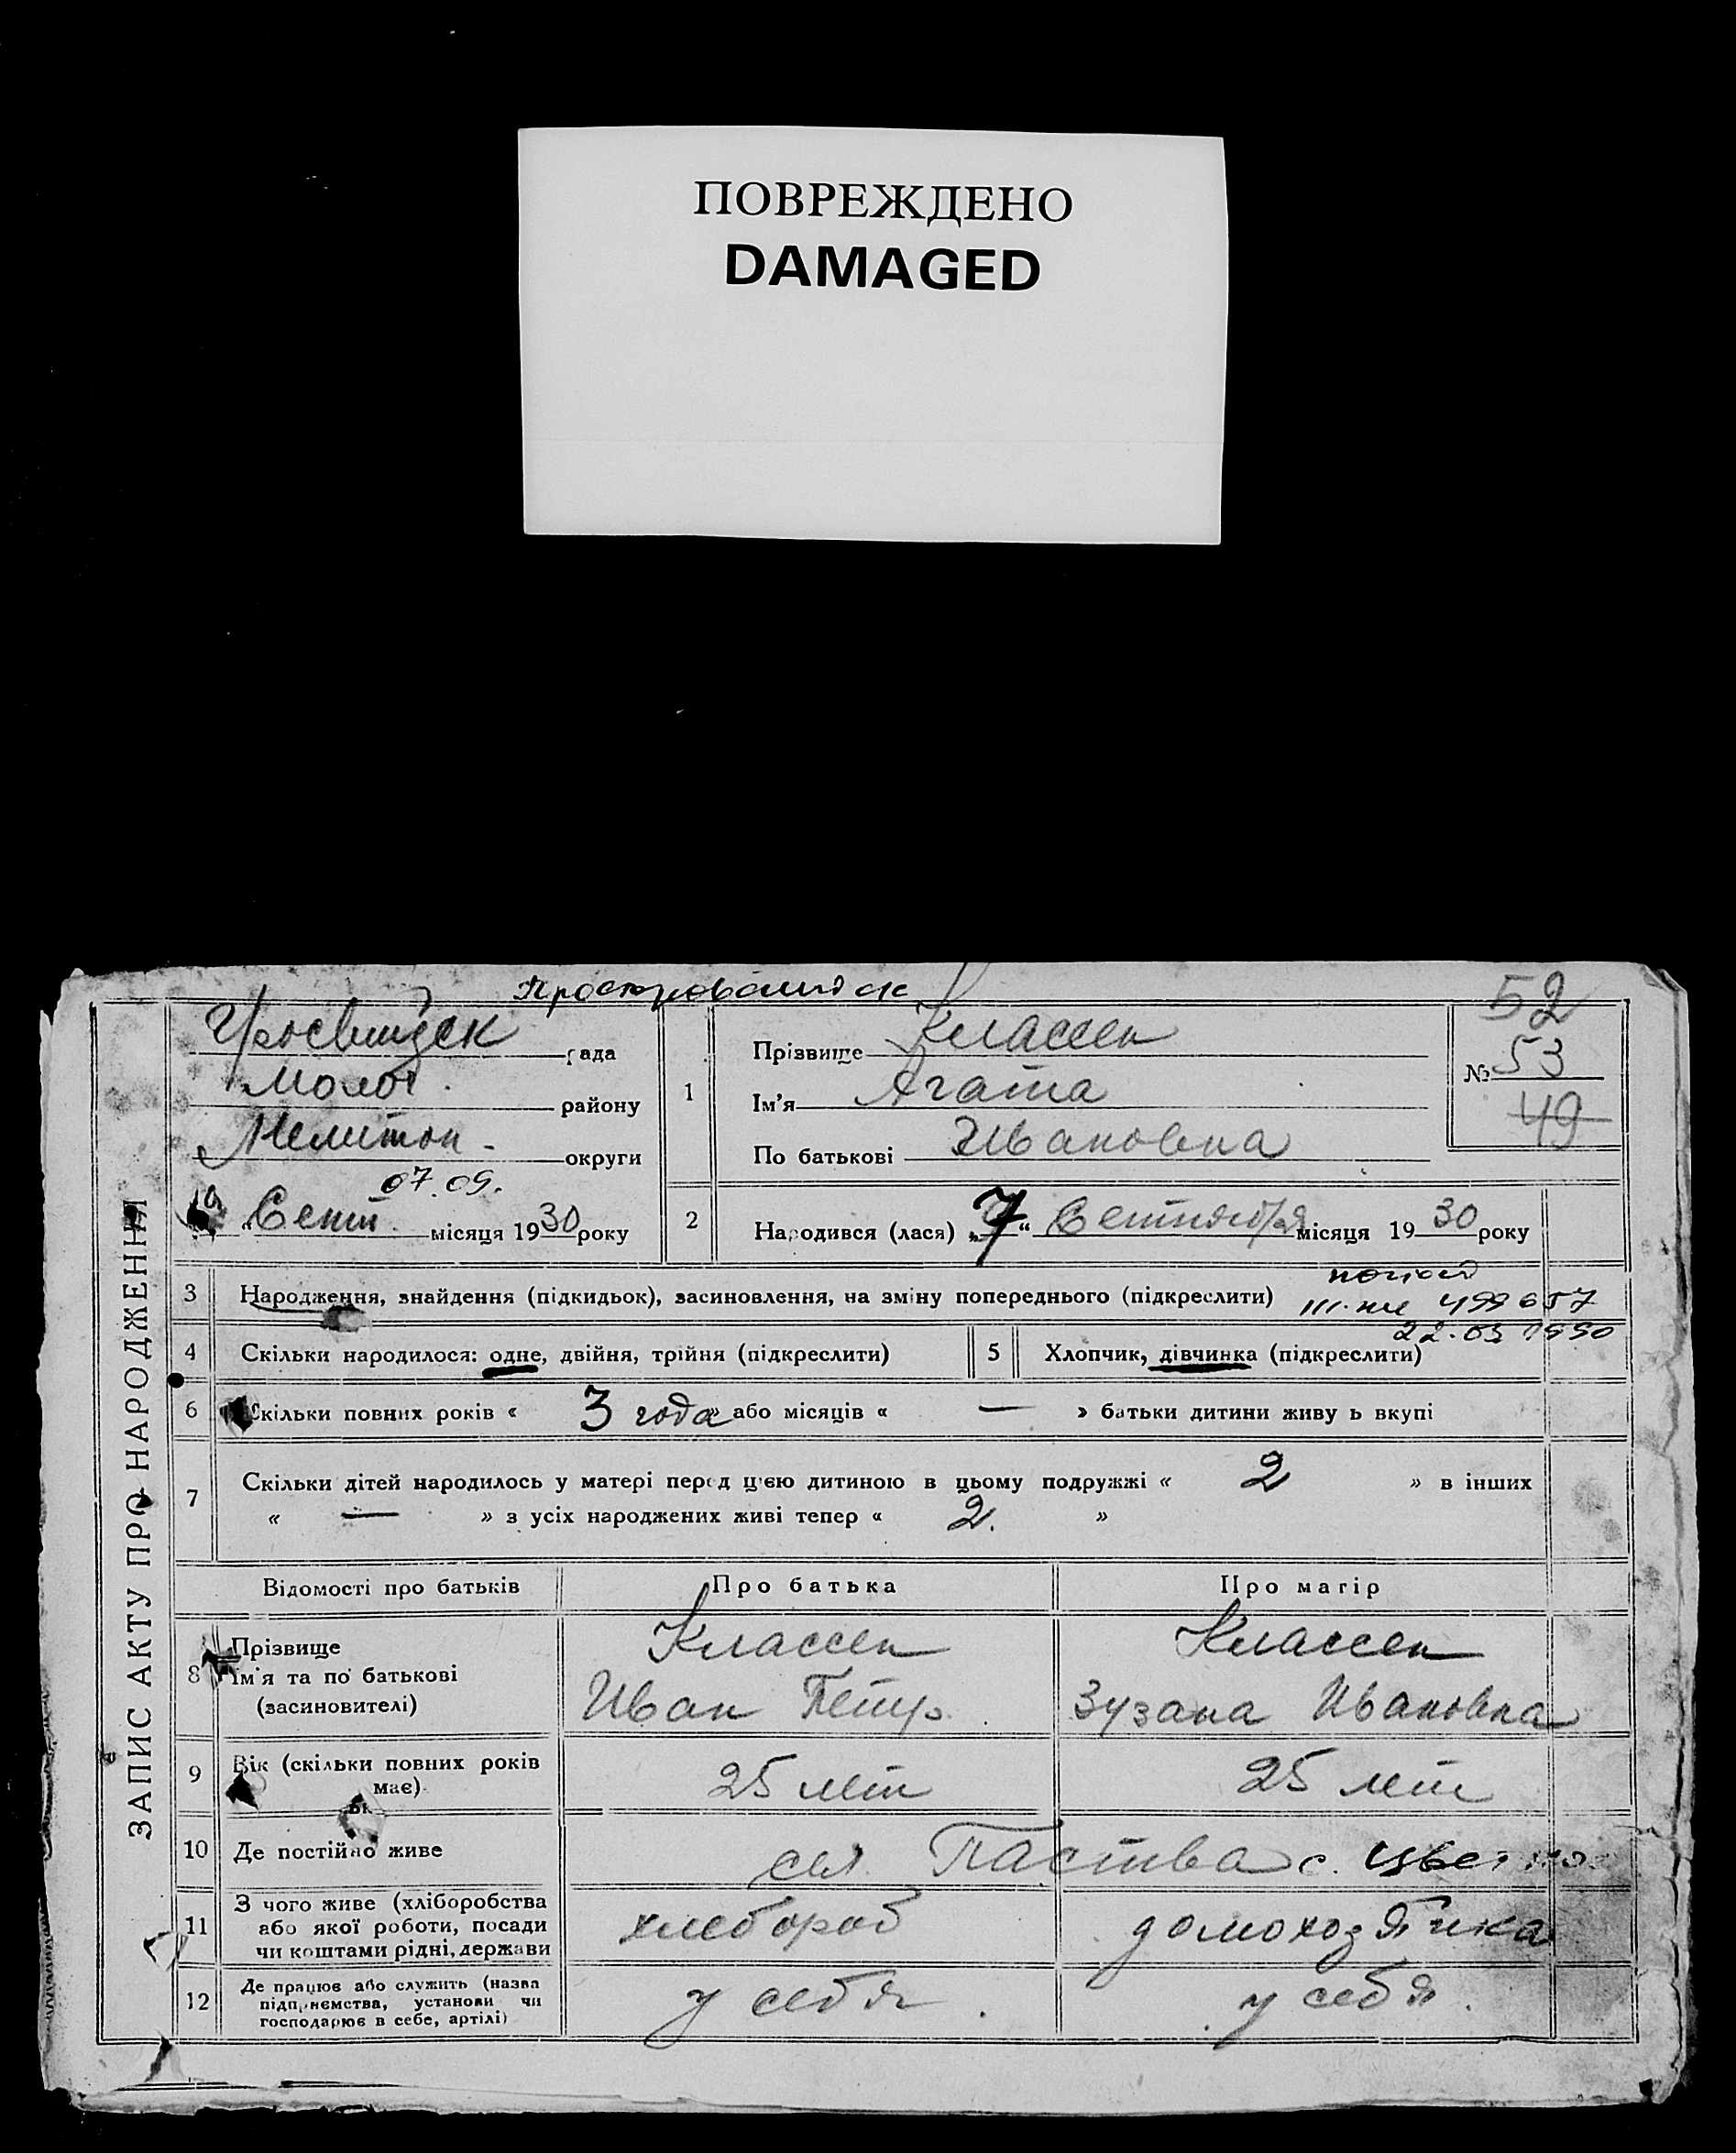 ПОВРЕЖДЕНО
DAMAGED
52
Гросвайдск рада
Молоч. району
Мелитоп - округи
07.09.
Сент. місяця 1930 року
1
Прізвище Классен
Ім'я Агата
По батькові Ивановна
№ 53
49
2
Народився (лася) „7“ Сентября місяця 1930 року
ЗАПИС АКТУ ПРО НАРОДЖЕННЯ
3 Народження, знайдення (підкидьок), засиновлення, на зміну попереднього (підкреслити)
499657
22.03 1990
4 Скільки народилося: одне, двійня, трійня (підкреслити)
5 Хлопчик, дівчинка (підкреслити)
6 Скільки повних років « 3 года » або місяців « — » батьки дитини живуть вкупі
7 Скільки дітей народилось у матері перед цією дитиною в цьому подружжі « 2 » в інших
« — » з усіх народжених живі тепер « 2. »
Відомості про батьків Про батька Про матір
8 Прізвище Классен Классен
Ім'я та по батькові Иван Петр. Зузана Ивановна
(засиновителі)
9 Вік (скільки повних років має) 25 лет 25 лет
10 Де постійно живе сел. Паства с.
11 З чого живе (хліборобства
або якої роботи, посади
чи коштами рідні, держави хлебороб домохозяйка
12 Де працює або служить (назва
підприємства, установи чи
господарює в себе, артілі) у себя у себя.